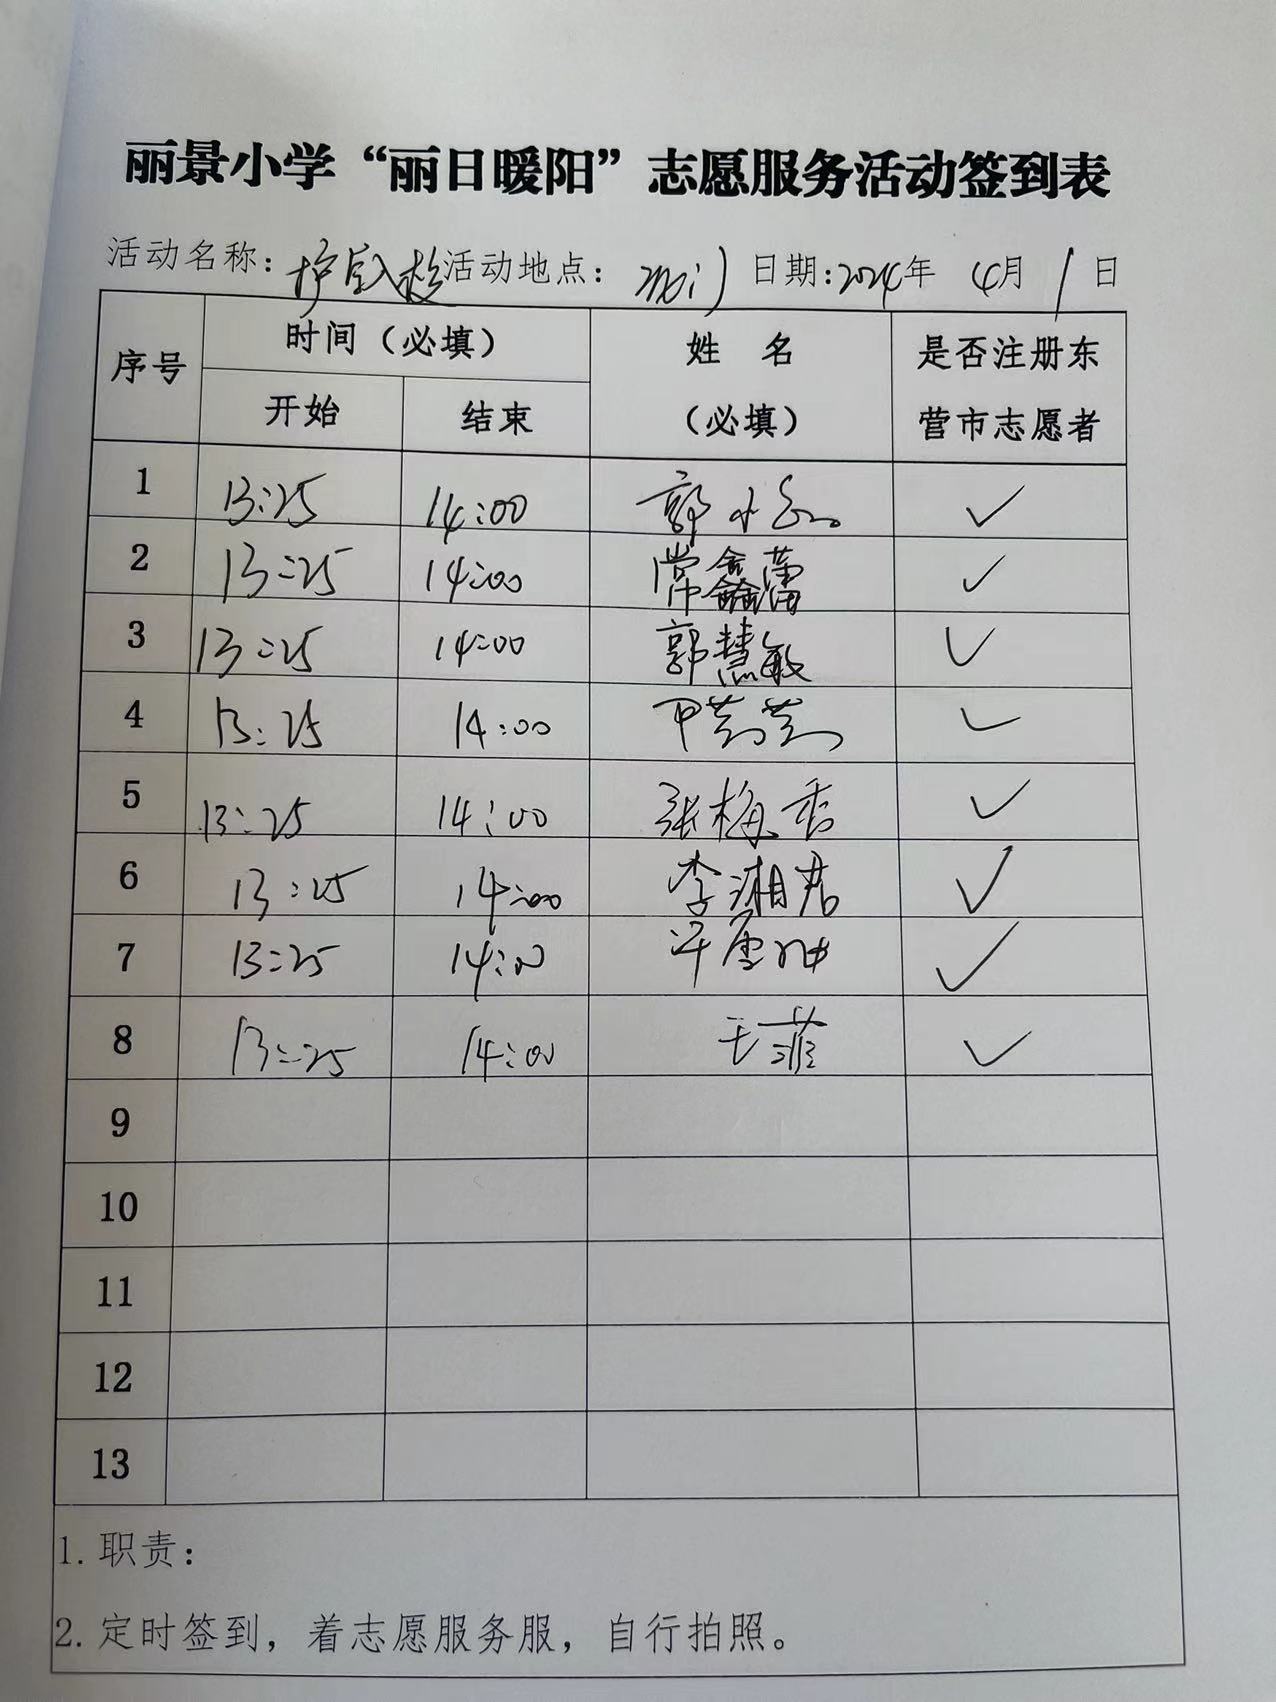 丽景小学“丽日暖阳”志愿服务活动签到表
活动名称：护导入校 活动地点： 日期：2024年 4月 1日
序号 时间（必填） 姓 名（必填） 是否注册东营市志愿者
开始 结束
1 13:25 14:00 郭 ✓
2 13:25 14:00 常鑫蕾 ✓
3 13:25 14:00 郭慧敏 ✓
4 13:25 14:00 ✓
5 13:25 14:00 张梅香 ✓
6 13:25 14:00 李湘君 ✓
7 13:25 14:00 ✓
8 13:25 14:00 王菲 ✓
9
10
11
12
13
1. 职责：
2. 定时签到，着志愿服务服，自行拍照。